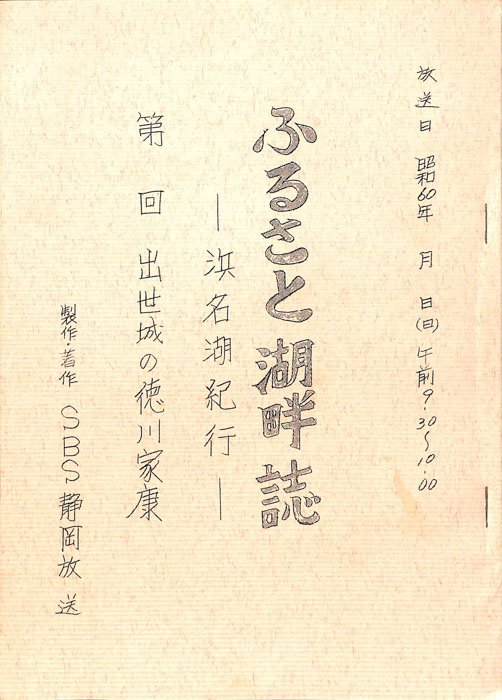 放送日 昭和60年 月 日(日)午前9.30〜10.00
ふるさと湖畔誌
―浜名湖紀行―
第 回 出世城の徳川家康
製作・著作 SBS静岡放送